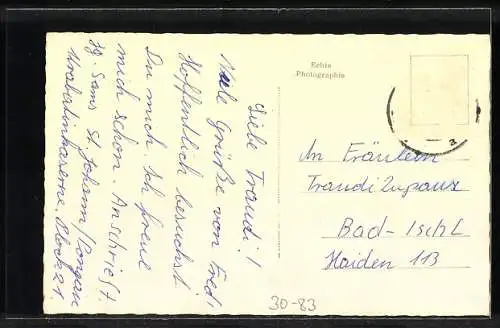 Liebe Traudi!
Viele Grüße von Fredi
Hoffentlich besuchst
Du mich. Ich freue
mich schon. Anschrift
Jg. Sams St. Johann/Pongau
Block 21
Echte
Photographie
An Fräulein
Traudi Zupanz
Bad-Ischl
Haiden 113
30-83